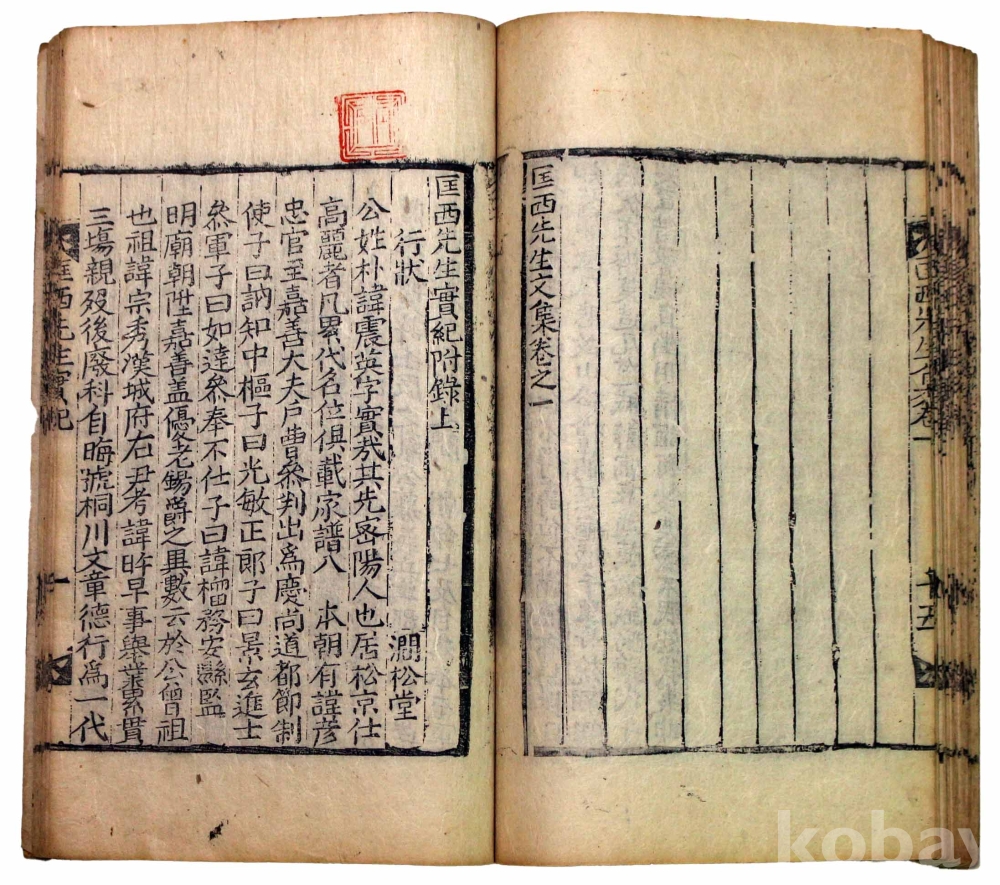 匡西先生文集卷之一
十五
匡西先生實紀附錄上
行狀 澗松堂
公姓朴諱震英字實哉其先密陽人也居松京仕
高麗者凡累代名位俱載家譜入 本朝有諱彦
忠官至嘉善大夫戶曹叅判出爲慶尚道都節制
使子曰訥知中樞子曰光敏正郎子曰景玄進士
叅軍子曰如達叅奉不仕子曰諱榴務安縣監
明廟朝陞嘉善盖優老錫爵之異數云於公曾祖
也祖諱宗秀漢城府右尹考諱旿早事舉業累貫
三塲親歿後廢科自晦號桐川文章德行爲一代
匡西先生實紀
一
kobay